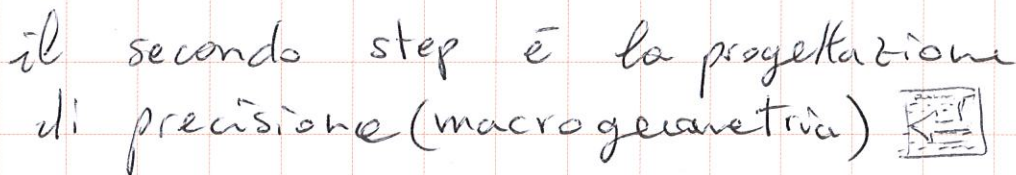 il secondo step è la progettazione
di precisione (macrogeometria)